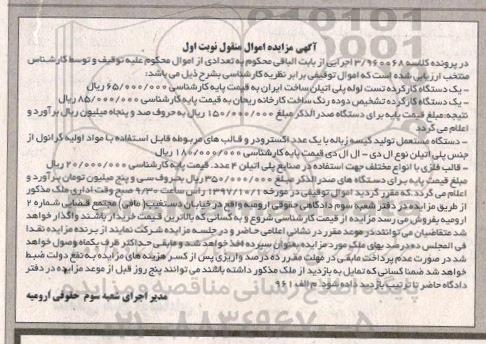 آگهی مزایده اموال منقول نوبت اول
در پرونده کلاسه ۳/۹۶۰۰۶۸ اجرایی از بابت الباقی محکوم به تعدادی از اموال محکوم علیه توقیف و توسط کارشناس
منتخب ارزیابی شده است که اموال توقیفی برابر نظریه کارشناسی بشرح ذیل می باشد:
- یک دستگاه کارکرده تست لوله پلی اتیلن ساخت ایران به قیمت پایه کارشناسی ۶۵/۰۰۰/۰۰۰ ریال
- یک دستگاه کارکرده تشخیص دوده رنگ ساخت کارخانه ریحان به قیمت پایه کارشناسی ۸۵/۰۰۰/۰۰۰ ریال
نتیجه: مبلغ قیمت پایه برای دستگاه صدر الذکر مبلغ ۱۵۰/۰۰۰/۰۰۰ ریال به حروف صد و پنجاه میلیون ریال برآورد و
اعلام می گردد.
- دستگاه مستعمل تولید کیسه زباله با یک عدد اکسترودر و قالب های مربوطه قابل استفاده با مواد اولیه گرانول از
جنس پلی اتیلن نوع ال دی - ال ال دی قیمت پایه کارشناسی ۱۸۰/۰۰۰/۰۰۰ ریال
- قالب فلزی با انواع مختلف جهت استفاده در صنایع پلی اتیلن ۴ عدد. قیمت پایه کارشناسی ۲۰/۰۰۰/۰۰۰ ریال
مبلغ قیمت پایه برای دستگاه های صدر الذکر مبلغ ۳۵۰/۰۰۰/۰۰۰ ریال بحروف سی و پنج میلیون تومان برآورد و
اعلام می گردد. که مقرر گردید اموال توقیفی در مورخه ۱۳۹۷/۱۰/۱ راس ساعت ۹/۳۰ صبح وقت اداری ملک مذکور
از طریق مزایده در دفتر شعبه سوم دادگاهی حقوقی ارومیه واقع در خیابان دستغیب (مافی) مجتمع قضایی شماره ۲
ارومیه بفروش می رسد مزایده از قیمت کارشناسی شروع و به کسانی که بالاترین قیمت خریدار باشند واگذار خواهد
شد متقاضیان می توانند در موعد مقرر در نشانی اعلامی حاضر و در جلسه مزایده شرکت نمایند از برنده مزایده نقدا
فی المجلس ده درصد بهای ملک مورد مزایده بعنوان سپرده اخذ خواهد شد و مابقی حداکثر ظرف یکماه وصول خواهد
شد در صورت عدم پرداخت مابقی در مهلت مقرر ده درصد واریزی پس از کسر هزینه های مزایده به نفع دولت ضبط
خواهد شد ضمنا کسانی که تمایل به بازدید از ملک مذکور داشته باشند می توانند پنج روز قبل از موعد مزایده در دفتر
دادگاه حاضر تا ترتیب بازدید داده شود. م الف ۹۶۱
مدیر اجرای شعبه سوم حقوقی ارومیه
پایگاه اطلاع رسانی مناقصه و مزایده
۰۲۱-۸۸۳۴۹۶۷۰-۵